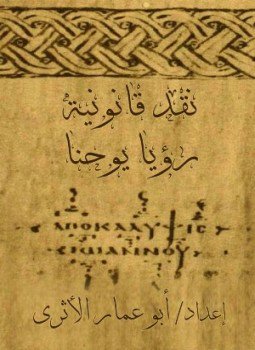 نقد قانونية
رؤيا يوحنا
ΑΠΟΚΑΛΥΨΙC
ΙΩΑΝΝΟΥ
إعداد/ أبو عمار الأثرى